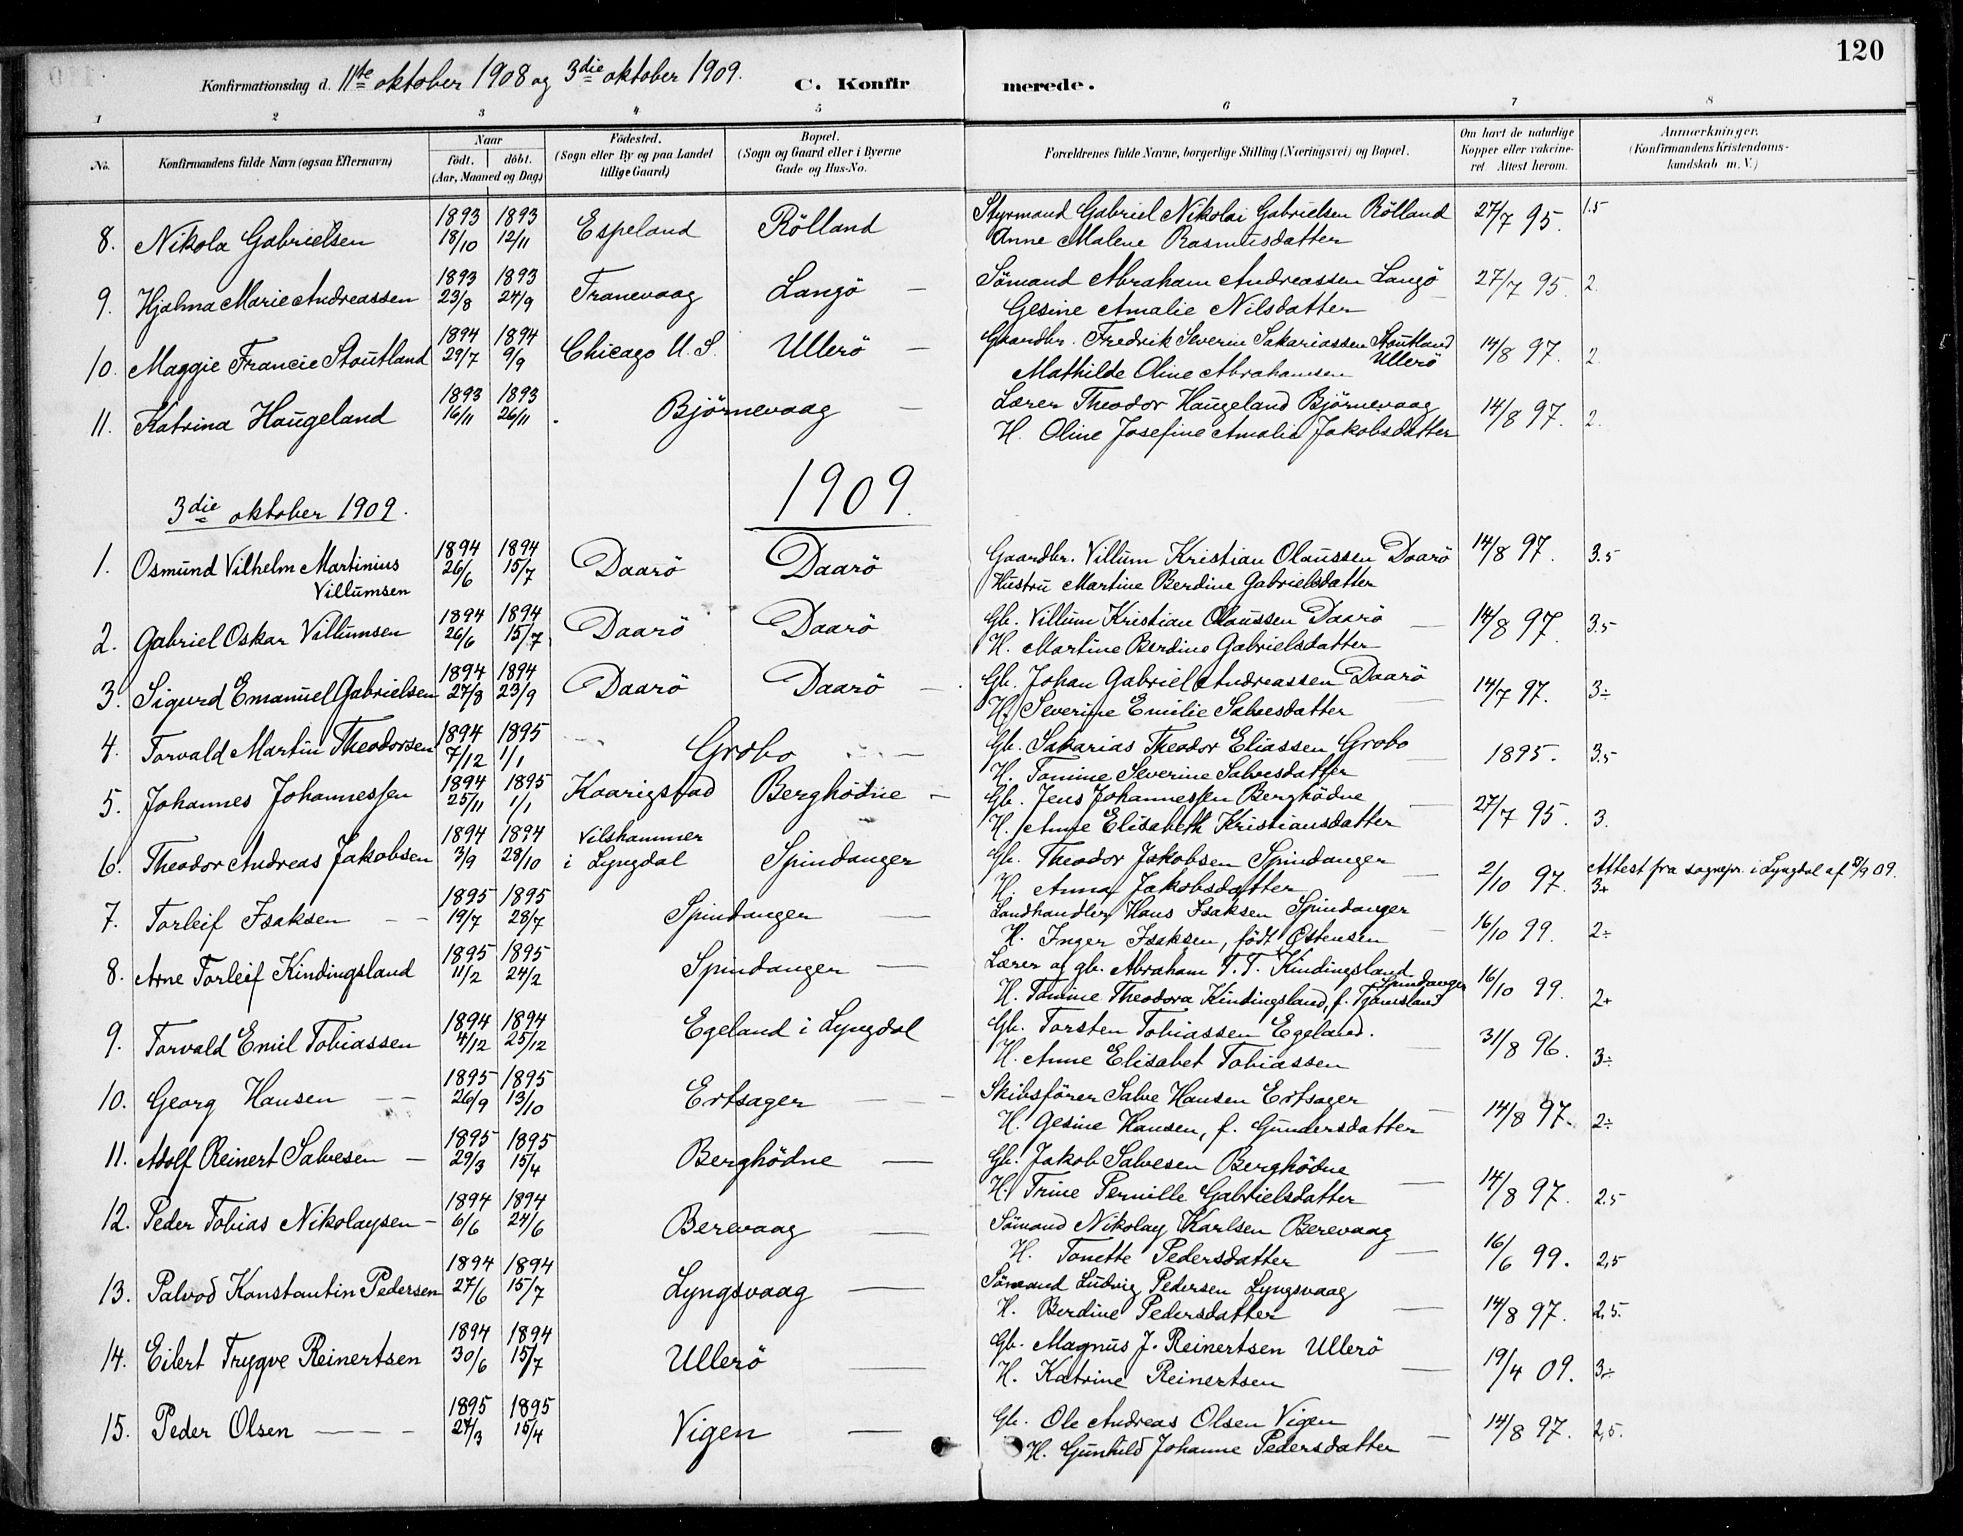 120
Konfirmationsdag d. 11te oktober 1908 og 3die oktober 1909. C. Konfirmerede.
1 2 3 4 5 6 7 8
No. Konfirmandens fulde Navn (ogsaa Efternavn) Naar födt. döbt. (Aar, Maaned og Dag) Födested. (Sogn eller By og paa Landet tillige Gaard) Bopæl. (Sogn og Gaard eller i Byerne Gade og Hus-No. Forældrenes fulde Navne, borgerlige Stilling (Næringsvei) og Bopæl. Om havt de naturlige Kopper eller vakcineret Attest herom. Anmærkninger. (Konfirmandens Kristendomskundskab m. V.)
8. Nikola Gabrielsen 1893 18/10 1893 12/11 Espeland Rölland Styrmand Gabriel Nikolai Gabrielsen Rölland 27/7 95. 1.5
Anne Malene Rasmusdatter
9. Hjalma Marie Andreassen 1893 23/8 1893 24/9 Tranevaag Langö Sömand Abraham Andreassen Langö 27/7 95. 2.
Gesine Amalie Nilsdatter
10. Maggie Francie Stoutland 1894 29/7 1894 9/9 Chicago U.S. Ullerö Gaardbr. Fredrik Severin Sakariassen Stoutland Ullerö 14/8 97. 2
Mathilde Oline Abrahamsen
11. Katrina Haugeland 1893 16/11 1893 26/11 Björnevaag Lærer Theodor Haugeland Björnevaag 14/8 97. 2.
H. Oline Josefine Amalia Jakobsdatter
3die oktober 1909. 1909.
1. Osmund Vilhelm Martinius Villumsen 1894 26/6 1894 15/7 Daarö Daarö Gaardbr. Villum Kristian Olaussen Daarö 14/8 97. 3.5
Hustru Martine Berdine Gabrielsdatter
2. Gabriel Oskar Villumsen 1894 26/6 1894 15/7 Daarö Daarö Gb. Villum Kristian Olaussen Daarö 14/8 97. 3.5
H. Martine Berdine Gabrielsdatter
3. Sigurd Emanuel Gabrielsen 1894 27/8 1894 23/9 Daarö Daarö Gb. Johan Gabriel Andreassen Daarö 14/7 97. 3÷
H. Severine Emilie Salvesdatter
4. Torvald Martin Theodorsen 1894 7/12 1895 1/1 Grobo Gb. Sakarias Theodor Eliassen Grobo 1895. 3.5
H. Tomine Severine Salvesdatter
5. Johannes Johannessen 1894 25/11 1895 1/1 Kaarigstad Berghödne Gb. Jens Johannessen Berghödne 27/7 95. 3.
H. Anne Elisabeth Kristiansdatter
6. Theodor Andreas Jakobsen 1894 3/9 1894 28/10 Vilshammer i Lyngdal Spindanger Gb. Theodor Jakobsen Spindanger 2/10 97. Attest fra sognepr. i Lyngdal af /9 09. 3+
H. Anna Jakobsdatter
7. Torleif Isaksen 1895 19/7 1895 28/7 Spindanger Landhandler Hans Isaksen Spindanger 16/10 99. 2÷
H. Inger Isaksen, födt Östensen
8. Arne Torleif Kindingsland 1895 11/2 1895 24/2 Spindanger Lærer og gb. Abraham T. T. Kindingsland Spindanger 16/10 99. 2+
H. Tomine Theodora Kindingsland, f. Tjomsland
9. Torvald Emil Tobiassen 1894 4/12 1894 25/12 Egeland i Lyngdal Gb. Torsten Tobiassen Egeland. 31/8 96. 3÷
H. Anne Elisabet Tobiassen
10. Georg Hansen 1895 26/9 1895 13/10 Ertsager Skibsförer Salve Hansen Ertsager 14/8 97. 2÷
H. Gesine Hansen, f. Gundersdatter
11. Adolf Reinert Salvesen 1895 29/3 1895 15/4 Berghödne Gb. Jakob Salvesen Berghödne 14/8 97. 2.5
H. Trine Pernille Gabrielsdatter
12. Peder Tobias Nikolaysen 1894 6/6 1894 24/6 Berevaag Sömand Nikolay Karlsen Berevaag 16/6 99. 2,5
H. Tonette Pedersdatter
13. Palvod Konstantin Pedersen 1894 27/6 1894 15/7 Lyngsvaag Sömand Ludvig Pedersen Lyngsvaag 14/8 97. 2,5.
H. Berdine Pedersdatter
14. Eilert Trygve Reinertsen 1894 30/6 1894 15/7 Ullerö Gb. Magnus J. Reinertsen Ullerö 19/4 09. 3÷
H. Katrine Reinertsen
15. Peder Olsen 1895 27/3 1895 15/4 Vigen Gb. Ole Andreas Olsen Vigen 14/8 97. 2,5.
H. Gunhild Johanne Pedersdatter